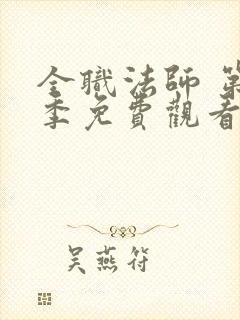 全職法師 第
季免費觀看
吴燕符